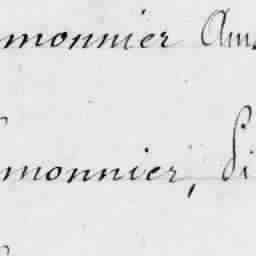 monnier Am
monnier, Di